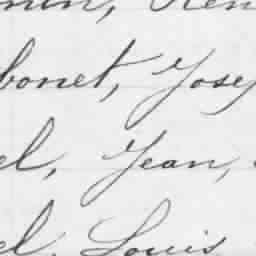 bonet, Jose
el, Jean,
el, Louis